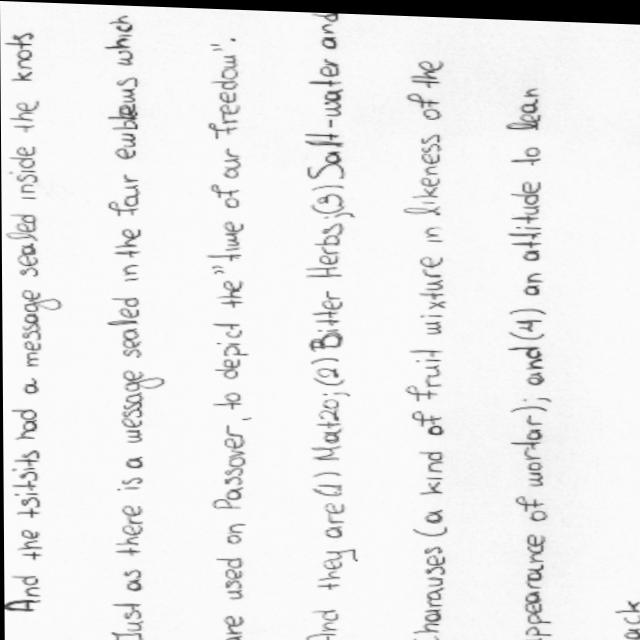 And the tsitsits had a message sealed inside the knots
Just as there is a message sealed in the four emblems which
are used on Passover, to depict the "time of our freedom".
And they are (1) Matzo; (2) Bitter Herbs; (3) Salt-water and
Charauses (a kind of fruit mixture in likeness of the
appearance of mortar); and (4) an attitude to lean